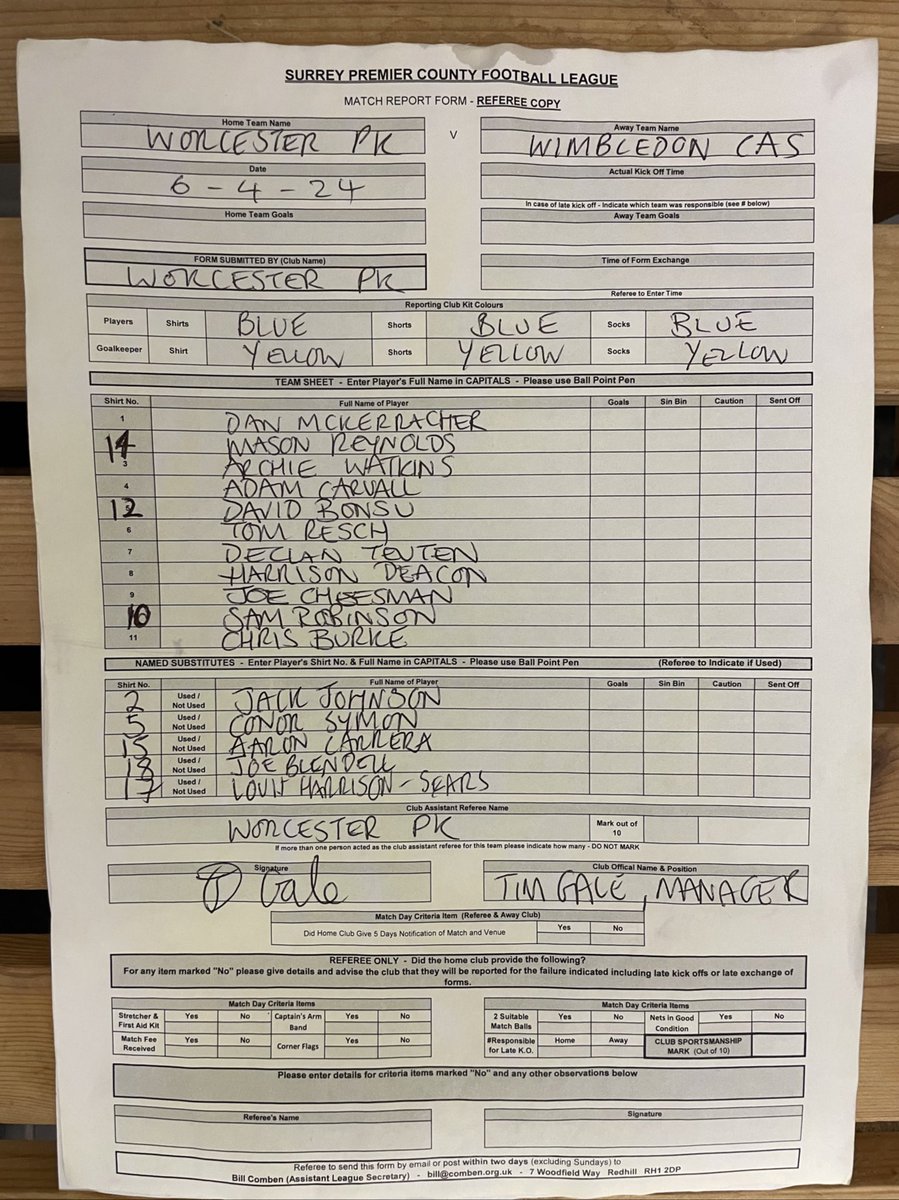 SURREY PREMIER COUNTY FOOTBALL LEAGUE
MATCH REPORT FORM - REFEREE COPY
Home Team Name
WORCESTER PK
V
Away Team Name
WIMBLEDON CAS
Date
6 - 4 - 24
Actual Kick Off Time
In case of late kick off - Indicate which team was responsible (see # below)
Home Team Goals
Away Team Goals
FORM SUBMITTED BY (Club Name)
WORCESTER PK
Time of Form Exchange
Referee to Enter Time
Reporting Club Kit Colours
Players Shirts BLUE Shorts BLUE Socks BLUE
Goalkeeper Shirt YELLOW Shorts YELLOW Socks YELLOW
TEAM SHEET - Enter Player's Full Name in CAPITALS - Please use Ball Point Pen
Shirt No. Full Name of Player Goals Sin Bin Caution Sent Off
1 DAN MCKERRACHER
14 MASON REYNOLDS
3 ARCHIE WATKINS
4 ADAM CARVALL
12 DAVID BONSU
6 TOM RESCH
7 DECLAN TEUTEN
8 HARRISON DEACON
9 JOE CHEESMAN
10 SAM ROBINSON
11 CHRIS BURKE
NAMED SUBSTITUTES - Enter Player's Shirt No. & Full Name in CAPITALS - Please use Ball Point Pen (Referee to Indicate if Used)
Shirt No. Full Name of Player Goals Sin Bin Caution Sent Off
2 Used / Not Used JACK JOHNSON
5 Used / Not Used CONOR SYMON
15 Used / Not Used AARON CARRERA
18 Used / Not Used JOE BLENDELL
17 Used / Not Used HARRISON-SEARS
Club Assistant Referee Name
WORCESTER PK Mark out of 10
If more than one person acted as the club assistant referee for this team please indicate how many - DO NOT MARK
Signature
T Gale
Club Offical Name & Position
TIM GALE, MANAGER
Match Day Criteria Item (Referee & Away Club)
Did Home Club Give 5 Days Notification of Match and Venue Yes No
REFEREE ONLY - Did the home club provide the following?
For any item marked "No" please give details and advise the club that they will be reported for the failure indicated including late kick offs or late exchange of
forms.
Match Day Criteria Items
Stretcher & First Aid Kit Yes No Captain's Arm Band Yes No
Match Fee Received Yes No Corner Flags Yes No
Match Day Criteria Items
2 Suitable Match Balls Yes No Nets in Good Condition Yes No
#Responsible for Late K.O. Home Away CLUB SPORTSMANSHIP MARK (Out of 10)
Please enter details for criteria items marked "No" and any other observations below
Referee's Name
Signature
Referee to send this form by email or post within two days (excluding Sundays) to
Bill Comben (Assistant League Secretary) - bill@comben.org.uk - 7 Woodfield Way Redhill RH1 2DP